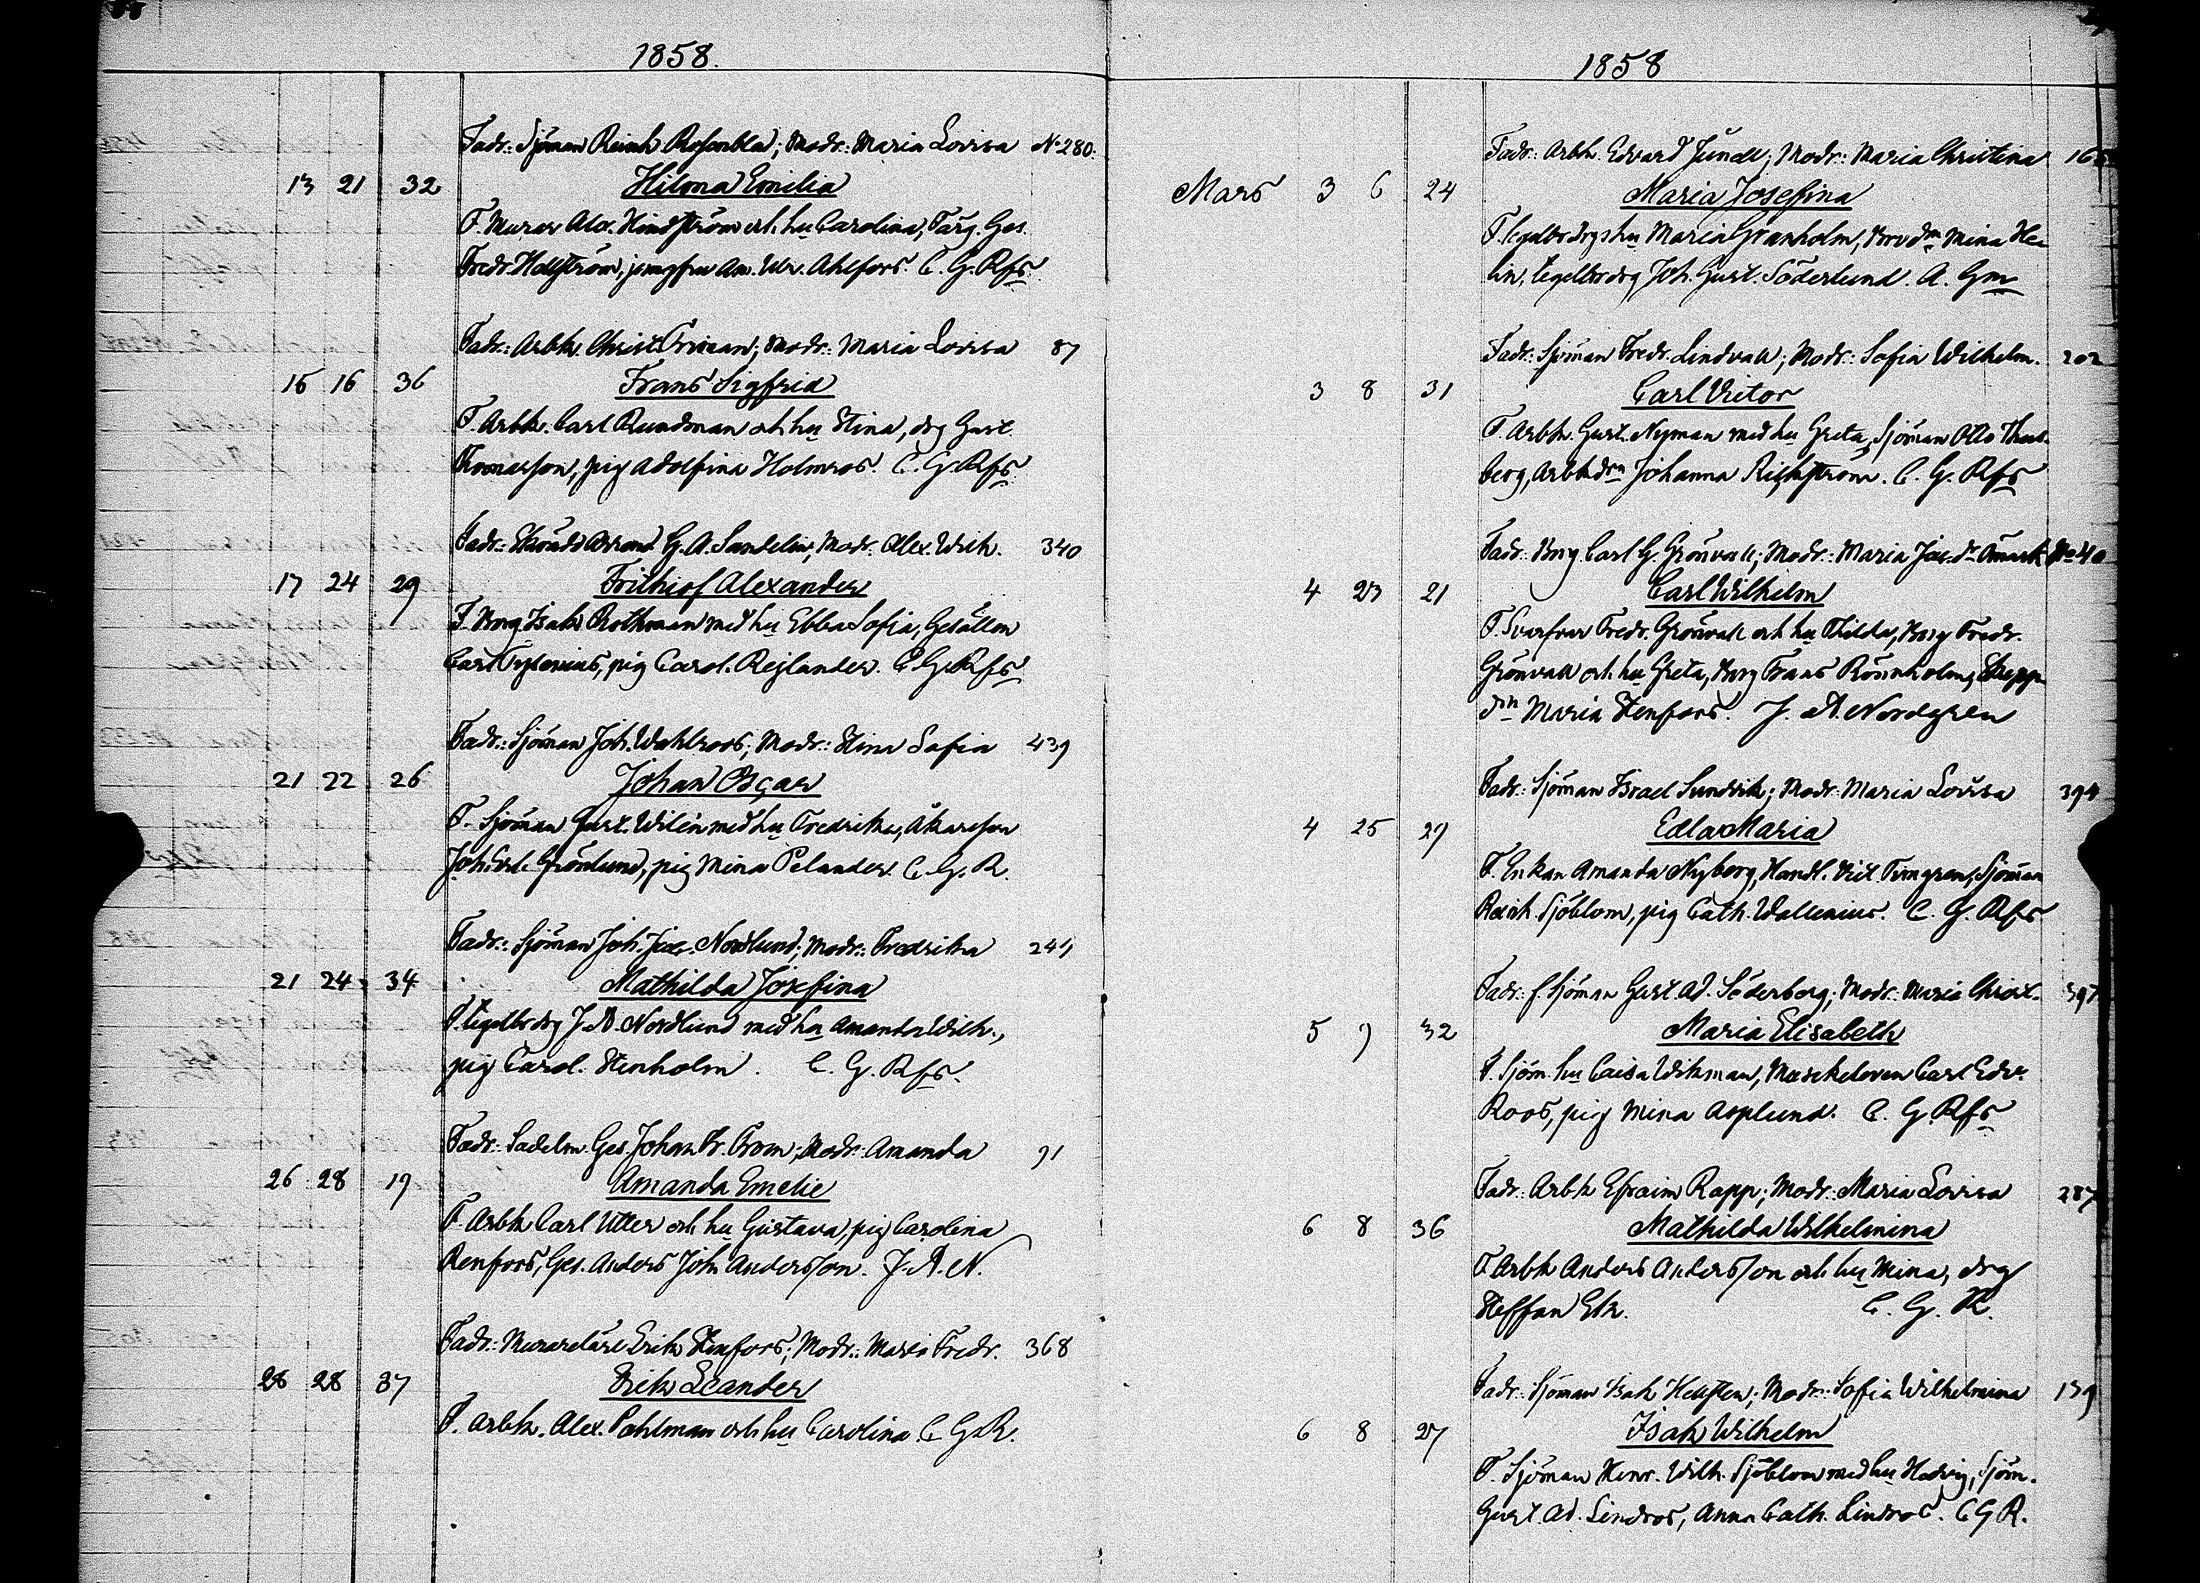 1858.
Fadr: Sjöman Reinh Rosenblad; Modr: Maria Lovisa No 280.
13 21 32 Hilma Emilia
F. Murar Alex. Hindström och hu Carolina, Färg. Ges.
Fredr. Hallström, jungfru Am. Ahlfors. C. G. Rfs
Fadr: Arbk Christ Friman; Modr: Maria Lovisa 87
15 16 36 Frans Sigfrid
F. Arbk. Carl Rundman och hu Stina, drg Gust.
Thomasson, pig Adolfina Holmros. C. G. Rfs
Fadr: G. A. Sandelin, Modr: Alex. Wilh. 340
17 24 29 Frithiof Alexander
F. Borg Isak Rothman med hu Ebba Sofia, Gesällen
Carl pig Carol. Rejlander. C. G. Rfs
Fadr: Sjöman Joh. Wahlroos; Modr: Stina Sofia 439
21 22 26 Johan Oscar
F. Sjöman Gust. Wilén med hu Fredrika, Åkaresson
Joh. Grönlund, pig Mina Pelander. C. G. R.
Fadr: Sjöman Joh. Jac. Nordlund; Modr: Fredrika 241
21 24 34 Mathilda Josefina
F. Tegelbr drg J. A. Nordlund med hu Amanda Wilh.,
pig Carol. Stenholm. C. G. Rfs.
Fadr: Sadelm. Ges. Johan Fr. From; Modr: Amanda 91
26 28 19 Amanda Emelie
F Arbk Carl Utter och hu Gustava, pig Carolina
Renfors, Ges. Anders Joh Andersson. J. A. N.
Fadr: Murarelärl Erik Stenfors; Modr: Maria Fredr. 368
26 28 37 Erik Leander
F. Arbk. Alex. Pahlman och hu Carolina C G R.
1858
Fadr: Arbk. Edvard Junell; Modr: Maria Christina
Mars 3 6 24 Maria Josefina
F. Tegelbr drgs hu Maria Granholm, Mina He-
lin, Tegelbr drg Joh. Gust. Söderlund. A. Gm
Fadr: Sjöman Fredr. Lindvall; Modr: Sofia Wilhelm. 202
3 8 31 Carl Victor
F. Arbk. Gust. Nyman med hu Greta, Sjöman Otto Thus-
berg, Arbkdrn Johanna Rickström. C. G. Rfs
Fadr: Borg Carl G Grönvall; Modr: Maria Jac. dr Åmark No 40
4 23 21 Carl Wilhelm
F. Svarfvar Fredr. Grönvall och hu Thilda, Borg Fredr.
Grönvall och hu Greta, Borg Frans Rönnholm, Skepp
drn Maria Stenfors. J. A. Nordgren
Fadr: Sjöman Israel Sundvik; Modr: Maria Lovisa 394
4 25 29 Edla Maria
F. Enkan Amanda Nyberg, Handl. Vict. Timgren, Sjöman
Reinh. Sjöblom, pig Cath. Wallenius. C. G. Rfs
Fadr: f. Sjöman Gust. Ad. Söderborg; Modr: Maria Christ. 397
5 9 32 Maria Elisabeth
F. Sjöm. hu Caisa Wikman, Carl Edv.
Roos, pig Mina Asplund. C. G. Rfs
Fadr: Arbk Efraim Rapp; Modr: Maria Lovisa 287
6 8 36 Mathilda Wilhelmina
F Arbk Anders Andersson och hu Mina, drg
Steffan Ek. C. G. R.
Fadr: Sjöman Isak Hellsten; Modr: Sofia Wilhelmina 139
6 8 27 Isak Wilhelm
F. Sjöman Henr. Wilh. Sjöblom med hu Hedvig, Sjöm.
Gust. Ad. Lindros, Anna Cath. Lindros. C G R.